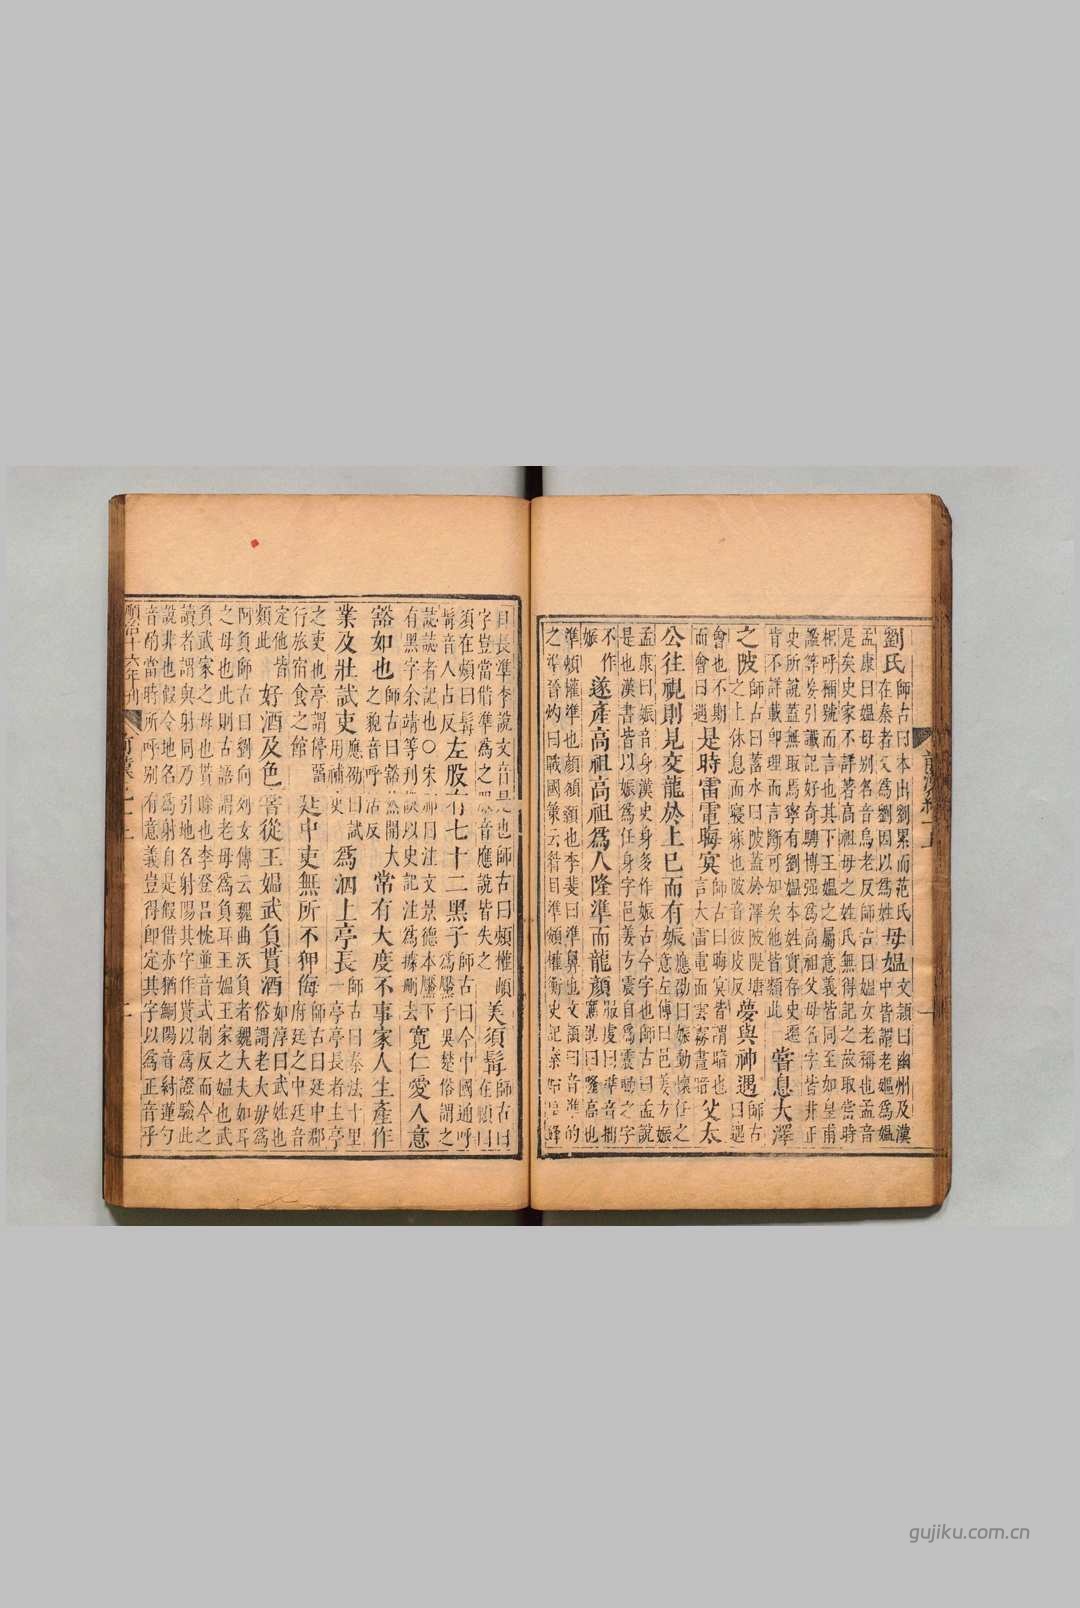 劉氏師古曰本出劉累而范氏在秦者又爲劉因以爲姓母媼文穎曰幽州及漢中皆謂老嫗爲媼
孟康曰媼母別名音烏老反師古曰媼女老稱也孟音是矣史家不詳著高祖母之姓氏無得記之故取當時
相呼稱號而言也其下王媼之屬意義皆同至如皇甫謐等妄引讖記好奇騁博强爲高祖父母名字皆非正
史所說蓋無取焉寧有劉媼本姓實存史遷肯不詳載即理而言斷可知矣他皆類此嘗息大澤
之陂師古曰蓄水曰陂蓋於澤陂隄塘之上休息而寢寐也陂音彼皮反夢與神遇師古曰遇
會也不期而會曰遇是時雷電晦冥師古曰晦冥皆謂暗也言大雷電而雲霧晝暗父太
公往視則見交龍於上已而有娠應劭曰娠動懷任之意左傳曰邑姜方娠
孟康曰娠音身漢史身多作娠古今字也師古曰孟說是也漢書皆以娠爲任身字邑姜方震自爲震動之字
不作娠遂產高祖高祖爲人隆準而龍顏服虔曰準音拙應劭曰隆高也
準頰權準也顏頟顙也李斐曰準鼻也文穎曰音準的之準晉灼曰戰國策云
目長準李說文音是也師古曰頰權頄字豈當借準爲之服音應說皆失之美須髯師古曰在頤曰
須在頰曰髯髯音人占反左股有七十二黑子師古曰今中國通呼爲黶子吳楚俗謂之
誌誌者記也〇宋祁曰注文景德本黶下有黑字余靖等刊誤以史記注爲據刪去寬仁愛人意
豁如也師古曰豁然開大之貌音呼活反常有大度不事家人生產作
業及壯試吏應劭曰試用補吏爲泗上亭長師古曰秦法十里一亭亭長者主亭
之吏也亭謂停留行旅宿食之館廷中吏無所不狎侮師古曰廷中郡府廷之中廷音
定他皆類此好酒及色嘗從王媼武負貰酒如淳曰武姓也俗謂老大母爲
阿負師古曰劉向列女傳云魏曲沃負者魏大夫如耳之母也此則古語謂老母爲負耳王媼王家之媼也武
負武家之母也貰賒也李登呂忱並音式制反而今之讀者謂與射同乃引地名射陽其字作貰以爲證驗此
說非也假令地名爲射自是假借亦猶鮦陽音紂蓮勺音酌當時所呼別有意義豈得即定其字以爲正音乎
順治十六年刊
gujiku.com.cn